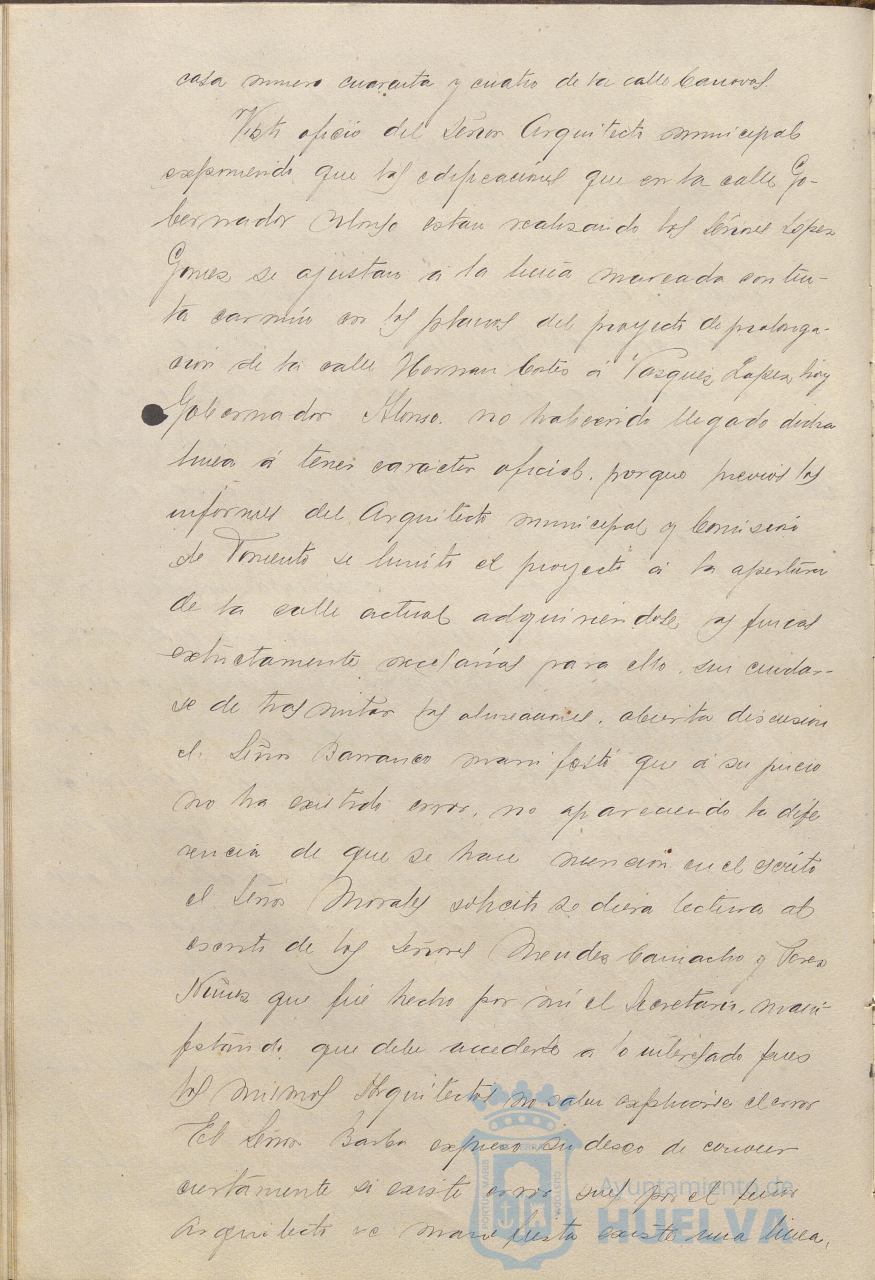 casa numero cuarenta y cuatro de la calle Canovas.
Visto oficio del Señor Arquitecto municipal
exponiendo que las edificaciones que en la calle Go-
bernador Alonso estan realizando los Señores López
Gomez se ajustan á la linea marcada con tin-
ta carmin en los planos del proyecto de prolonga-
cion de la calle Hernan Cortés á Vazquez Lopez, hoy
Gobernador Alonso. no habiendo llegado dicha
linea á tener carácter oficial, porque previos los
informes del Arquitecto municipal y Comision
de Fomento se limitó el proyecto á la apertura
de la calle actual adquiriendose las fincas
extrictamente necesarias para ello, sin cuidar-
se de tramitar las alineaciones. abierta discusion
el Señor Barranco manifestó que á su juicio
no ha existido error, no apareciendo la dife
rencia de que se hace mencion en el escrito
el Señor Morales solicitó se diera lectura al
escrito de los Señores Mendez Camacho y Perez
Nuñez que fué hecho por mi el Secretario, mani-
festando que debe accederse a lo interesado pues
los mismos Arquitectos no saben explicarse el error
El Señor Barba expuso su deseo de conocer
ciertamente si existe error, pues por el Señor
Arquitecto se manifiesta existe una linea,
Ayuntamiento de
HUELVA